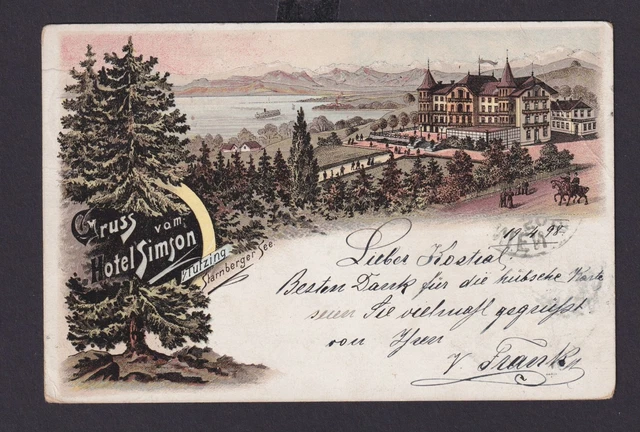 Gruss vom
Hotel Simson
Tutzing
Starnberger See.
19 4 98
Lieber Kostial
Besten Dank für die hübsche Karte
seien Sie vielmahl gegrüßt
von Ihren
V Frank